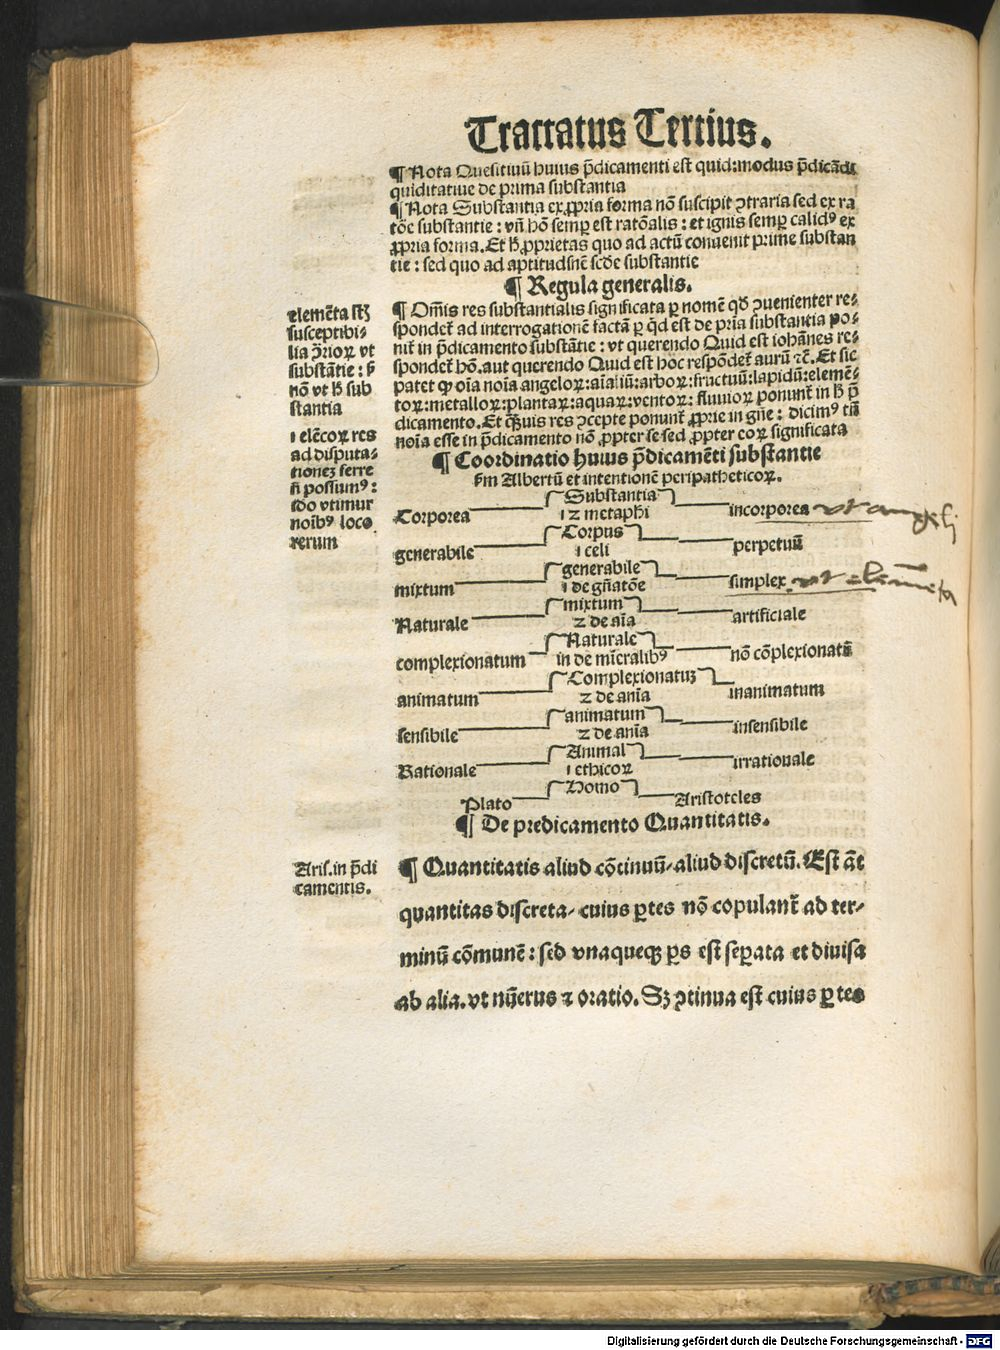 Tractatus Tertius.
¶ Nota Quesitiuū huius p̄dicamenti est quid: modus p̄dicādi
quiditatiue de prima substantia
¶ Nota Substantia ex ꝓpria forma nō suscipit ꝯtraria sed ex ra
tōe substantie : vn̄ hō semꝑ est ratōalis : et ignis semꝑ calidꝰ ex
ꝓpria forma. Et h̄ ꝓprietas quo ad actū conuenit prime substan
tie : sed quo ad aptitudīnē scd̄e substantie
¶ Regula generalis.
¶ Om̄is res substantialis significata ꝑ nomē qd̄ ꝯuenienter re⸗
spondet̄ ad interrogationē factā ꝑ qͥd est de pria substantia po⸗
nit̄ in p̄dicamento substātie : vt querendo Quid est iohānes re⸗
spondet̄ hō. aut querendo Quid est hoc respōdet̄ aurū ⁊c̄. Et sic
patet ꝙ oīa noīa angeloꝝ: aīaliū: arboꝝ: fructuū: lapidū: elemē⸗
toꝝ: metalloꝝ: plantaꝝ: aquaꝝ: ventoꝝ: fluuioꝝ ponunt̄ in h̄ p̄
dicamento. Et qͣuis res ꝯcepte ponunt̄ ꝓprie in gn̄e : dicimꝰ tn̄
noīa esse in p̄dicamento nō ꝓpter se sed ꝓpter eoꝝ significata
elemēta sꝫ
susceptibi⸗
lia ꝯ̄rioꝝ vt
substātie : ꝑ̄
nō vt h̄ sub
stantia
i elēcoꝝ res
ad disputa⸗
tionez ferre
n̄ possumꝰ :
ido vtimur
noībꝰ loco
rerum
¶ Coordinatio huius p̄dicamēti substantie
ẜm Albertū et intentionē peripatheticoꝝ.
Substantia
i ⁊ metaph̄i
Corporea incorporea vt angeli
Corpus
i celi
generabile perpetuū
generabile
i de gn̄atōe
mixtum simplex. vt elementa
mixtum
⁊ de aīa
Naturale artificiale
Naturale
in de mīeralibꝰ
complexionatum nō cōplexionatū
Complexionatuꝫ
⁊ de anīa
animatum inanimatum
animatum
⁊ de anīa
sensibile insensibile
Animal
i ethicoꝝ
Rationale irrationale
Homo
Plato Aristoteles
¶ De predicamento Quantitatis.
Aris. in p̄di
camentis.
¶ Quantitatis aliud cōtinuū⸗ aliud discretū. Est āt
quantitas discreta⸗ cuius ꝑtes nō copulant̄ ad ter⸗
minū cōmunē : sed vnaqueqꝫ ꝑs est seꝑata et diuisa
ab alia. vt nūerus ⁊ oratio. Sꝫ ꝯtinua est cuius ꝑtes
Digitalisierung gefördert durch die Deutsche Forschungsgemeinschaft - DFG